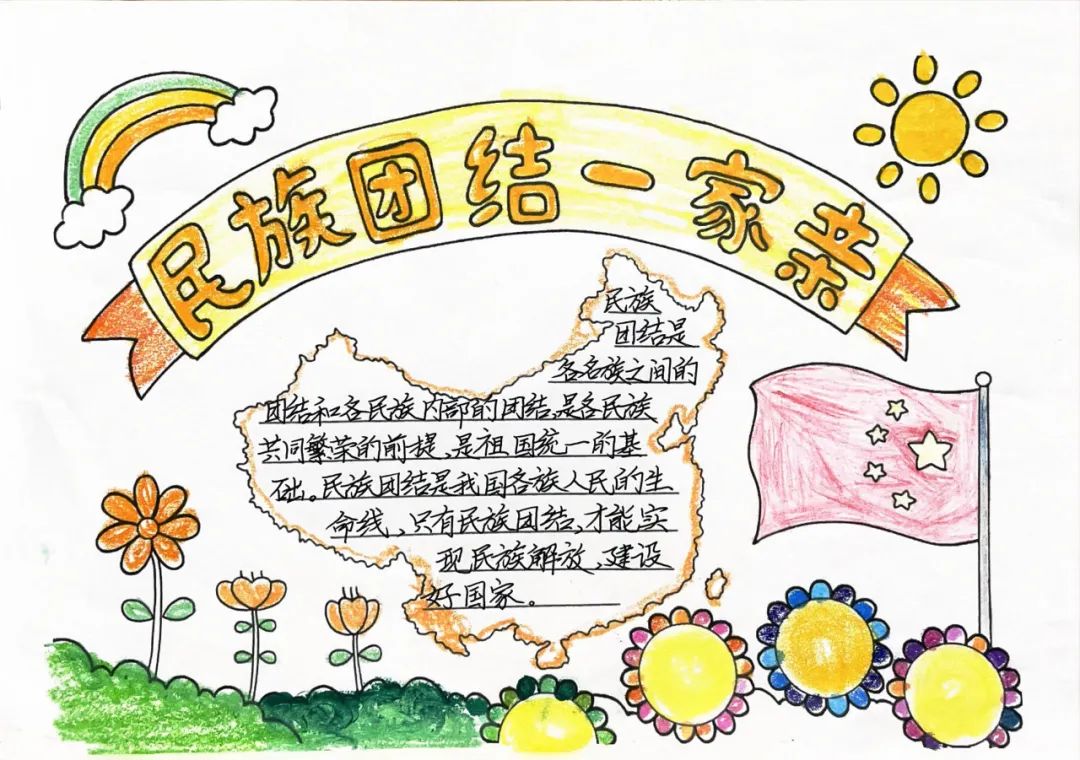 民族团结一家亲
民族
团结是
各名族之间的
团结和各民族内部的团结,是各民族
共同繁荣的前提、是祖国统一的基
础。民族团结是我国各族人民的生
命线、只有民族团结,才能实
现民族解放、建设
好国家。